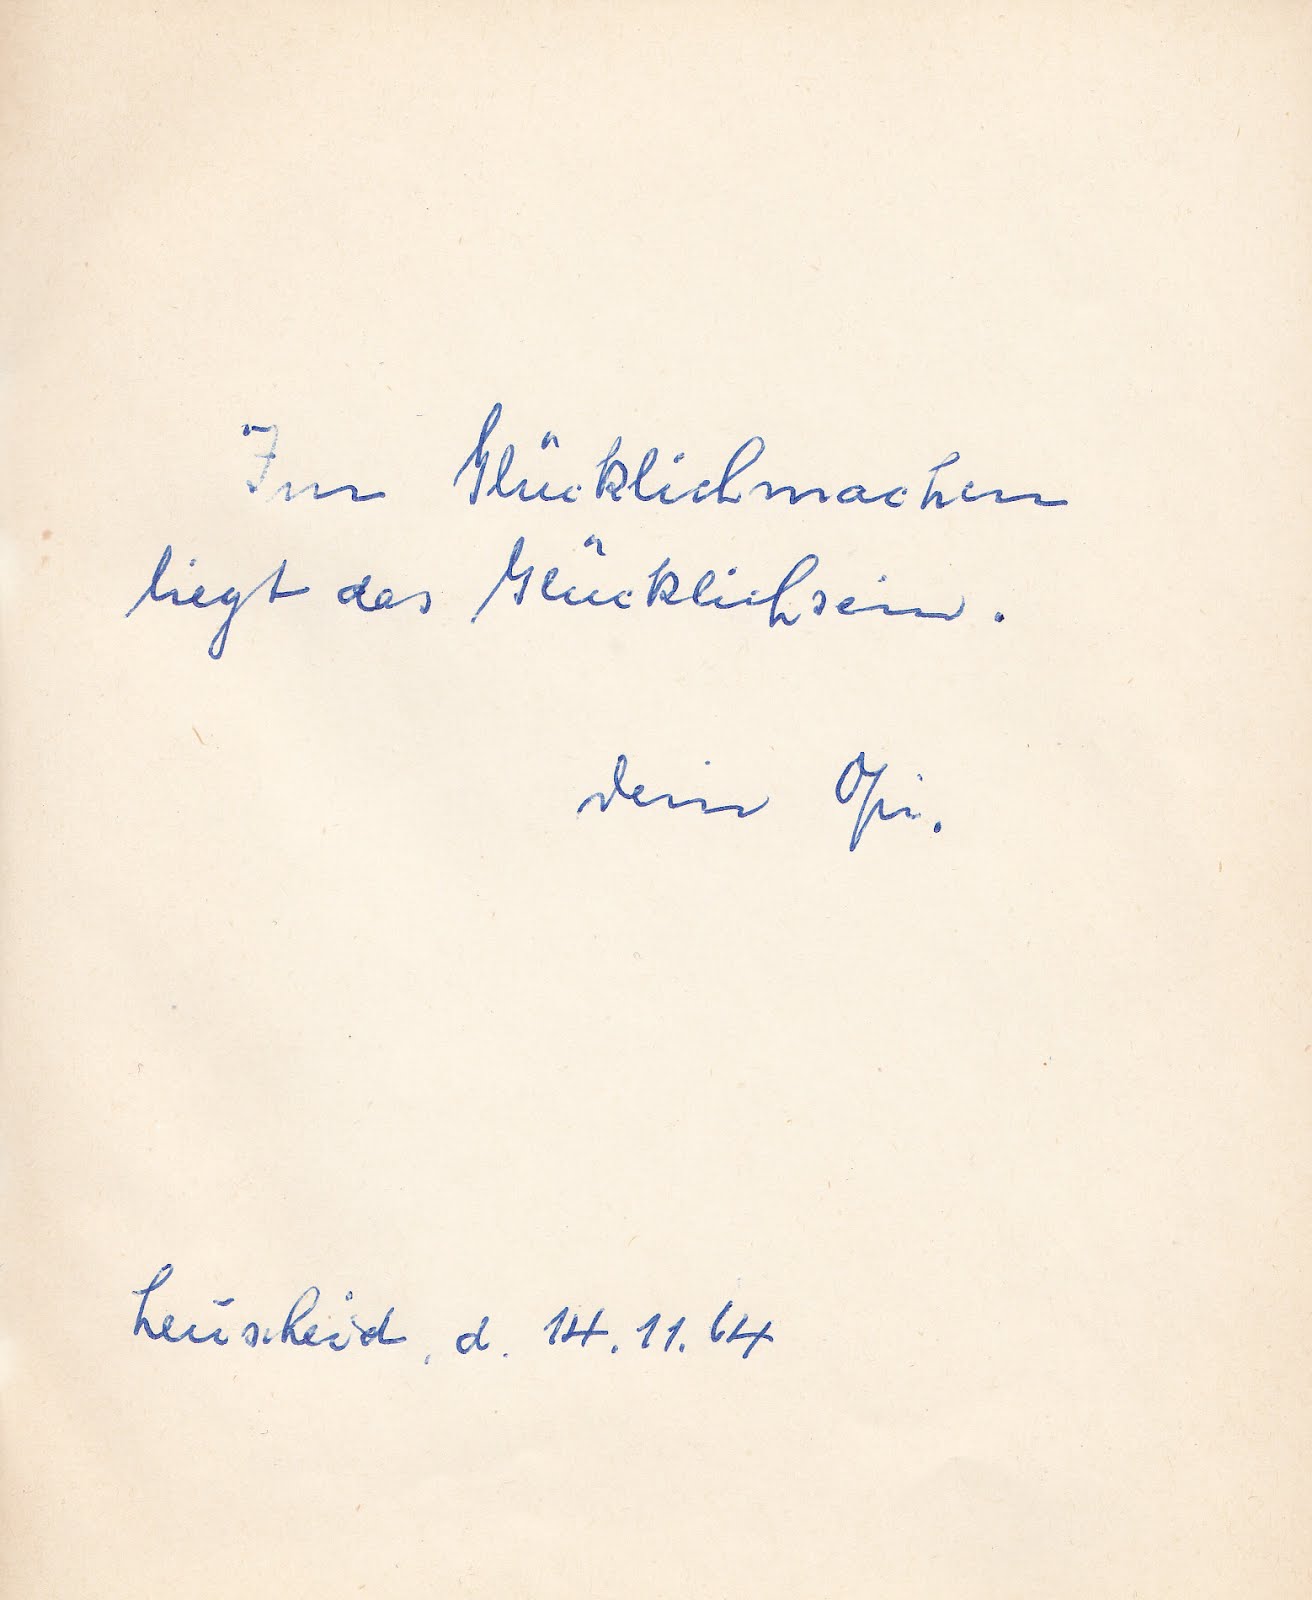 Im Glücklichmachen
liegt das Glücklichsein.
Dein Opi.
Leuscheid, d. 14.11.64